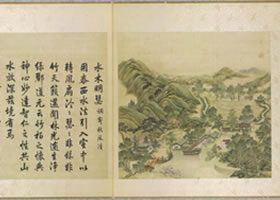 水木明瑟 調寄秋風清
用泰西水法引入室中以
轉風扇泠泠瑟瑟非絲非
竹天籟遙聞林光逾生淨
綠酈道元云竹柏之懷與
神心妙達智仁之性共山
水效深茲境有焉